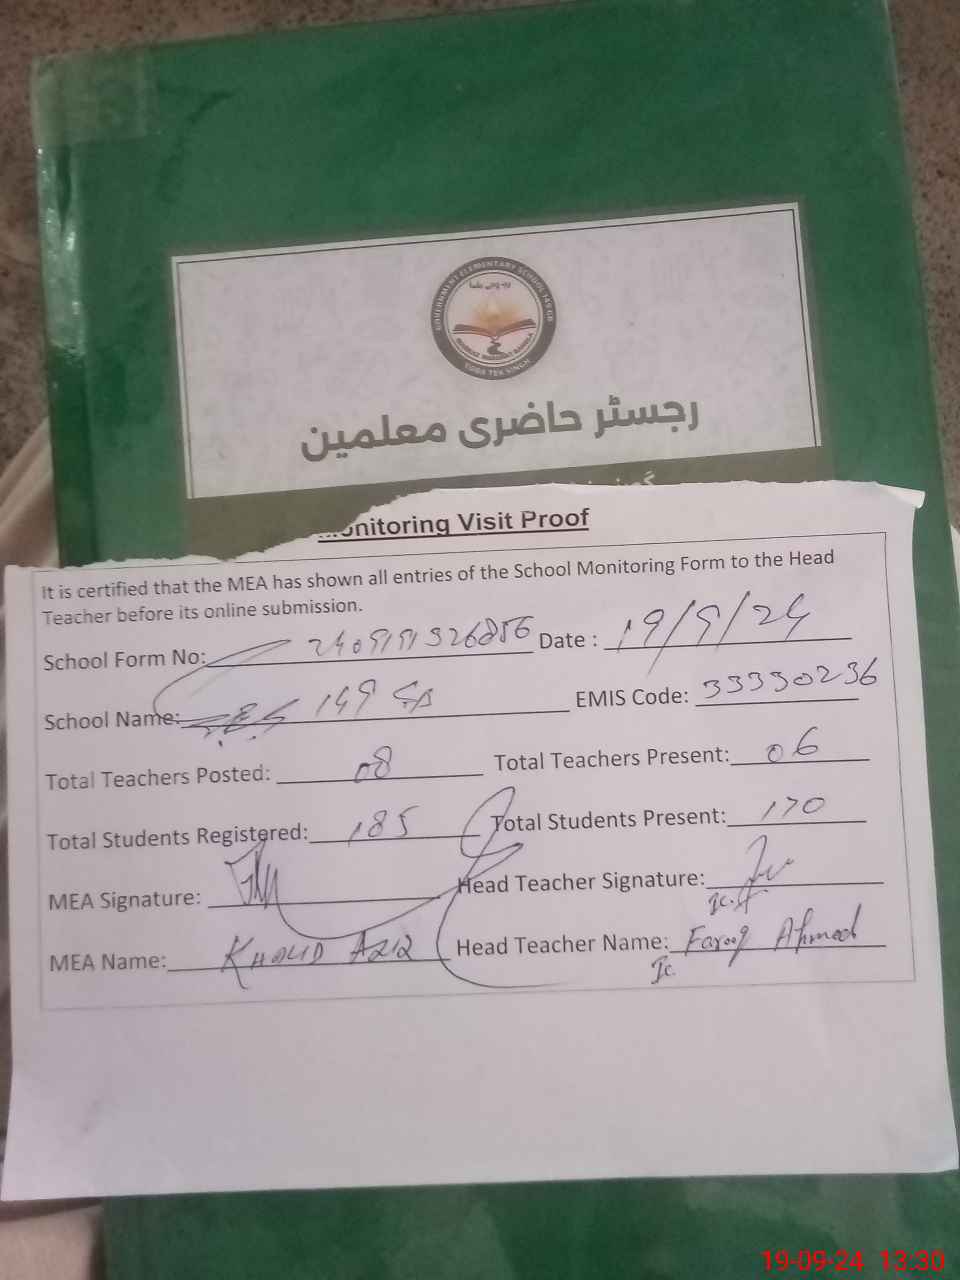 GOVERNMENT ELEMENTARY SCHOOL 149 GB
TOBA TEK SINGH
رجسٹر حاضری معلمین
Monitoring Visit Proof
It is certified that the MEA has shown all entries of the School Monitoring Form to the Head
Teacher before its online submission.
School Form No: Date : 19/9/24
School Name: 149 GB EMIS Code: 33330236
Total Teachers Posted: 08 Total Teachers Present: 06
Total Students Registered: 185 Total Students Present: 170
MEA Signature: Head Teacher Signature:
MEA Name: KHALID AZIZ Head Teacher Name: Farooq Ahmed
Ic.
19-09-24 13:30